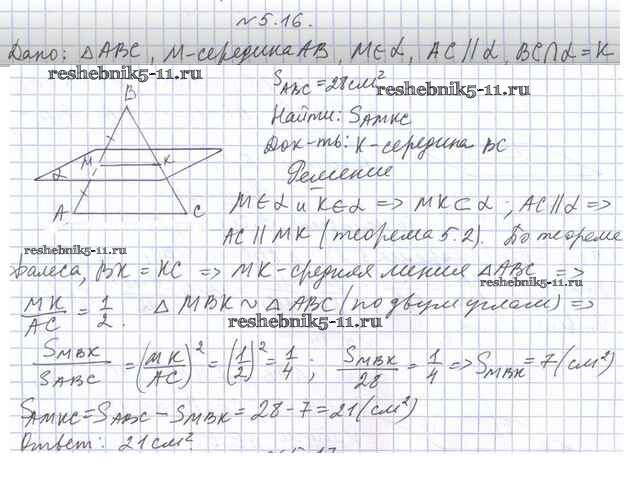 №5.16.
Дано: △ABC, M-середина AB, M∈α, AC∥α, BC∩α=K
reshebnik5-11.ru
S_ABC=28см²
reshebnik5-11.ru
Найти: S_AMKC
Док-ть: K-середина BC
Решение
B
M
K
α
A
C
M∈α и K∈α => MK⊂α; AC∥α =>
AC∥MK (теорема 5.2). По теореме
reshebnik5-11.ru
Фалеса, BK=KC => MK-средняя линия △ABC =>
reshebnik5-11.ru
MK/AC = 1/2. △MBK ~ △ABC (по двум углам) =>
reshebnik5-11.ru
S_MBK/S_ABC = (MK/AC)² = (1/2)² = 1/4; S_MBK/28 = 1/4 => S_MBK=7(см²)
S_AMKC=S_ABC-S_MBK=28-7=21(см²)
Ответ: 21см²